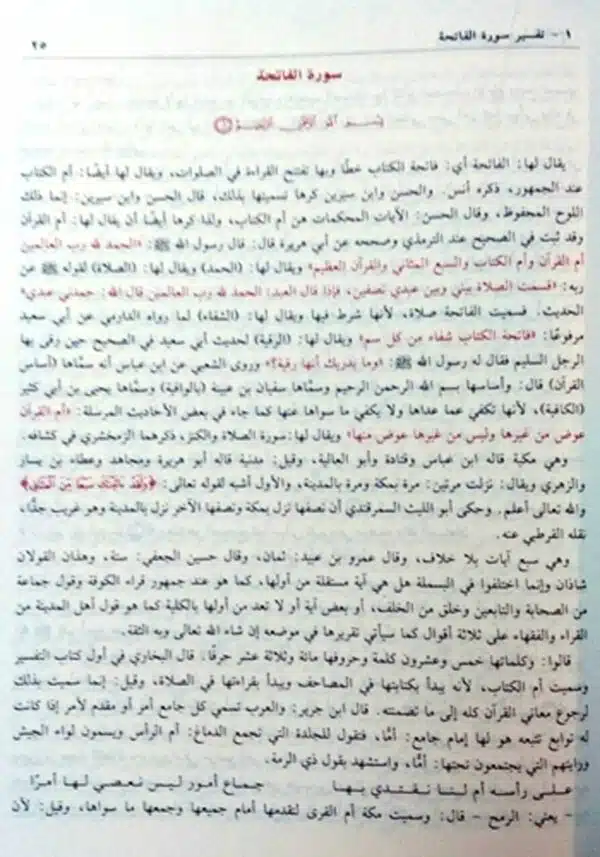 ١ - تفسير سورة الفاتحة
٢٥
سورة الفاتحة
يقال لها: الفاتحة أي: فاتحة الكتاب خطًا وبها تفتتح القراءة في الصلوات، ويقال لها أيضًا: أم الكتاب
عند الجمهور، ذكره أنس. والحسن وابن سيرين كرها تسميتها بذلك، قال الحسن وابن سيرين: إنما ذلك
اللوح المحفوظ، وقال الحسن: الآيات المحكمات هن أم الكتاب، ولذا كرها أيضًا أن يقال لها: أم القرآن
وقد ثبت في الصحيح عند الترمذي وصححه عن أبي هريرة قال: قال رسول الله ﷺ: «الحمد لله رب العالمين
أم القرآن وأم الكتاب والسبع المثاني والقرآن العظيم» ويقال لها: (الحمد) ويقال لها: (الصلاة) لقوله ﷺ عن
ربه: «قسمت الصلاة بيني وبين عبدي نصفين، فإذا قال العبد: الحمد لله رب العالمين قال الله: حمدني عبدي»
الحديث. فسميت الفاتحة صلاة، لأنها شرط فيها ويقال لها: (الشفاء) لما رواه الدارمي عن أبي سعيد
مرفوعًا: «فاتحة الكتاب شفاء من كل سم» ويقال لها: (الرقية) لحديث أبي سعيد في الصحيح حين رقى بها
الرجل السليم فقال له رسول الله ﷺ: «وما يدريك أنها رقية؟» وروى الشعبي عن ابن عباس أنه سمَّاها (أساس
القرآن) قال: وأساسها بسم الله الرحمن الرحيم وسمَّاها سفيان بن عيينة (بالواقية) وسمَّاها يحيى بن أبي كثير
(الكافية)، لأنها تكفي عما عداها ولا يكفي ما سواها عنها كما جاء في بعض الأحاديث المرسلة: «أم القرآن
عوض من غيرها وليس من غيرها عوض منها» ويقال لها: سورة الصلاة والكنز، ذكرهما الزمخشري في كشافه.
وهي مكية قاله ابن عباس وقتادة وأبو العالية، وقيل: مدنية قاله أبو هريرة ومجاهد وعطاء بن يسار
والزهري ويقال: نزلت مرتين: مرة بمكة ومرة بالمدينة، والأول أشبه لقوله تعالى: ﴿وَلَقَدْ ءَاتَيْنَٰكَ سَبْعًا مِّنَ ٱلْمَثَانِى﴾
والله تعالى أعلم. وحكى أبو الليث السمرقندي أن نصفها نزل بمكة ونصفها الآخر نزل بالمدينة وهو غريب جدًّا،
نقله القرطبي عنه.
وهي سبع آيات بلا خلاف، وقال عمرو بن عبيد: ثمان، وقال حسين الجعفي: ستة، وهذان القولان
شاذان وإنما اختلفوا في البسملة هل هي آية مستقلة من أولها، كما هو عند جمهور قراء الكوفة وقول جماعة
من الصحابة والتابعين وخلق من الخلف، أو بعض آية أو لا تعد من أولها بالكلية كما هو قول أهل المدينة من
القراء والفقهاء على ثلاثة أقوال كما سيأتي تقريرها في موضعه إن شاء الله تعالى وبه الثقة.
قالوا: وكلماتها خمس وعشرون كلمة وحروفها مائة وثلاثة عشر حرفًا. قال البخاري في أول كتاب التفسير
وسميت أم الكتاب، لأنه يبدأ بكتابتها في المصاحف ويبدأ بقراءتها في الصلاة، وقيل: إنما سميت بذلك
لرجوع معاني القرآن كله إلى ما تضمنته. قال ابن جرير: والعرب تسمي كل جامع أمر أو مقدم لأمر إذا كانت
له توابع تتبعه هو لها إمام جامع: أمًّا، فتقول للجلدة التي تجمع الدماغ: أم الرأس ويسمون لواء الجيش
ورايتهم التي يجتمعون تحتها: أمًّا، واستشهد بقول ذي الرمة.
على رأسه أم لنا نقتدي بها جماع أمور ليس نعصي لها أمرًا
- يعني: الرمح - قال: وسميت مكة أم القرى لتقدمها أمام جميعها وجمعها ما سواها، وقيل: لأن